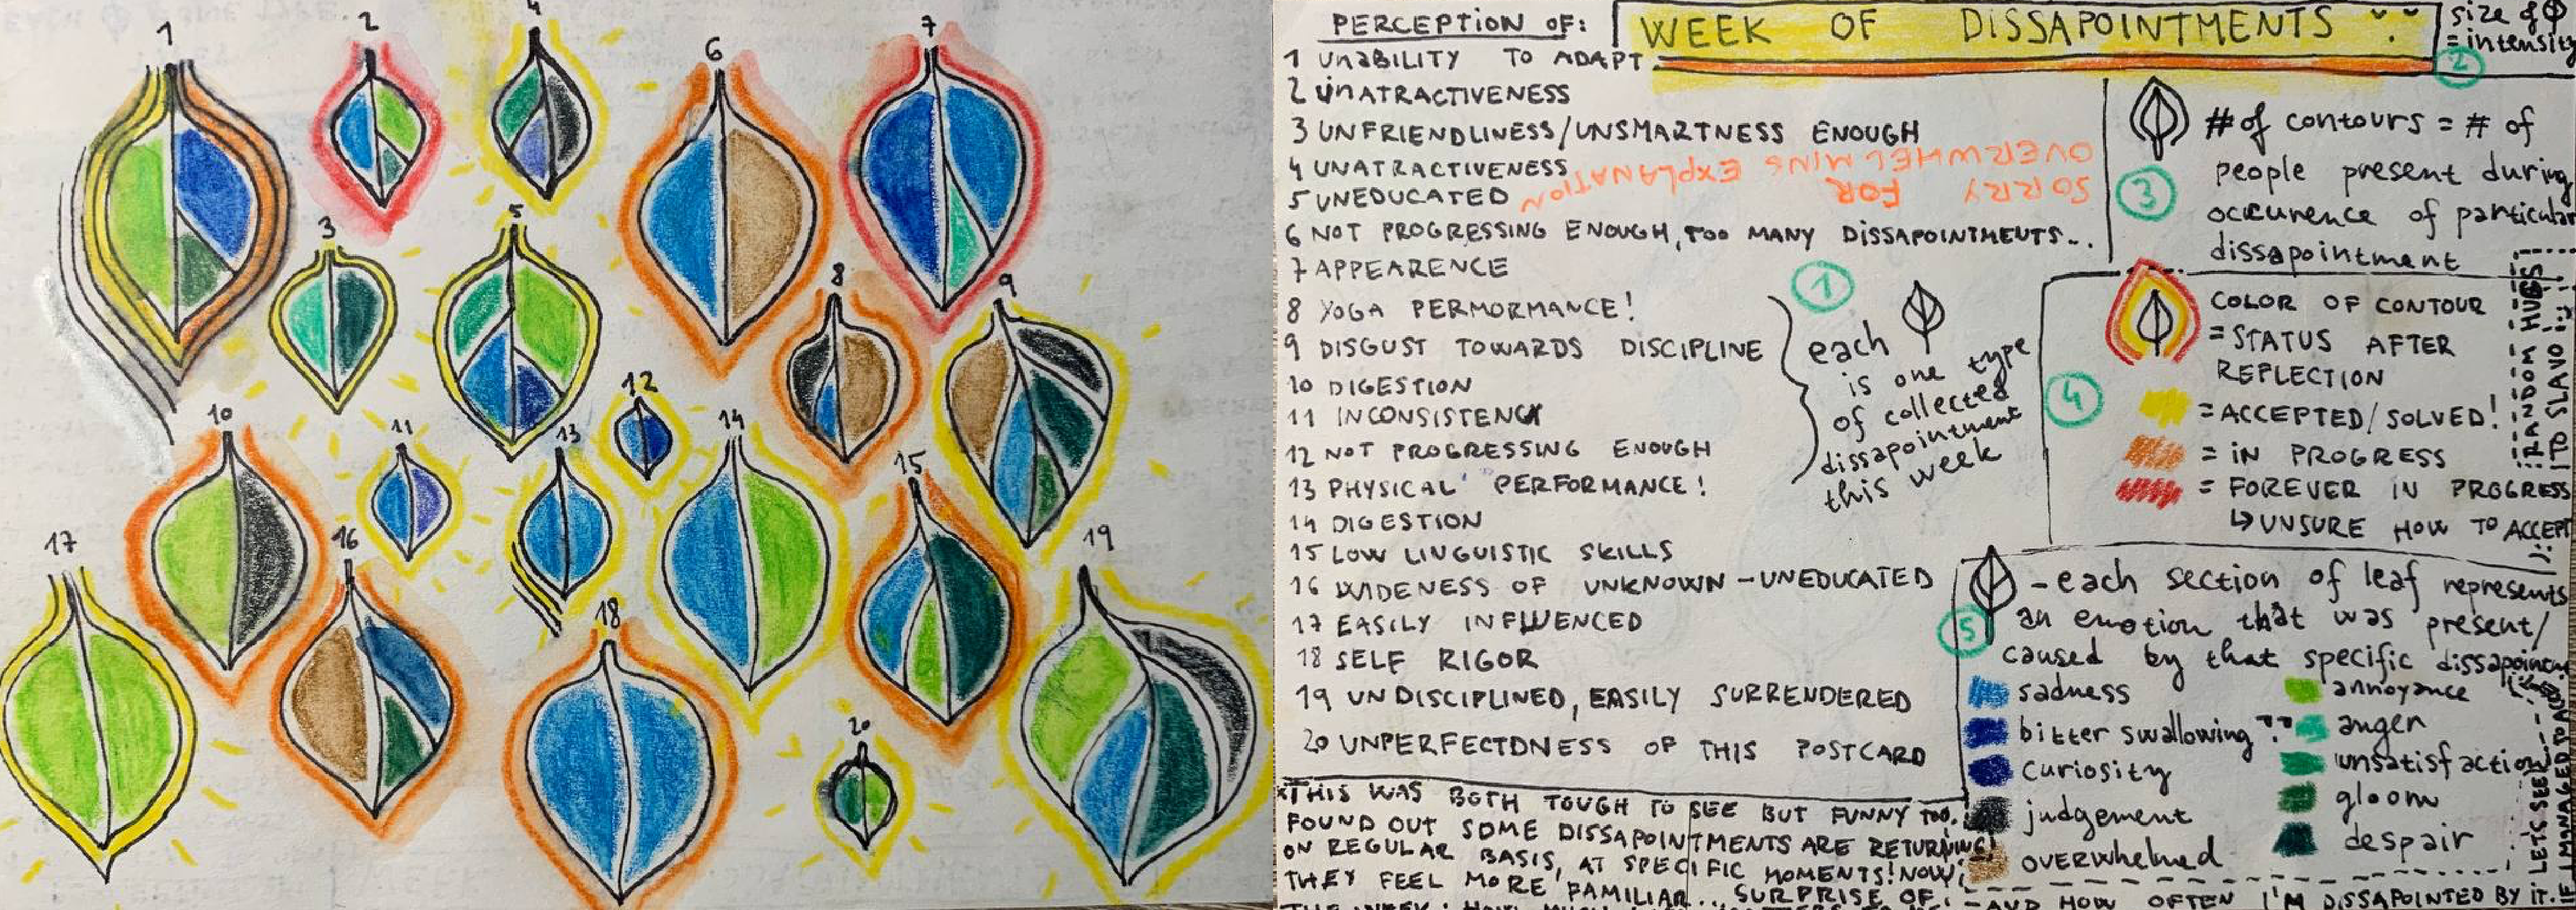 1
2
4
6
7
3
5
8
9
10
11
12
13
14
15
16
17
18
19
20
PERCEPTION OF:
1 UNABILITY TO ADAPT
2 UNATRACTIVENESS
3 UNFRIENDLINESS/UNSMARTNESS ENOUGH
4 UNATRACTIVENESS
5 UNEDUCATED
6 NOT PROGRESSING ENOUGH, TOO MANY DISSAPOINTMENTS...
7 APPEARENCE
8 YOGA PERMORMANCE!
9 DISGUST TOWARDS DISCIPLINE
10 DIGESTION
11 INCONSISTENCY
12 NOT PROGRESSING ENOUGH
13 PHYSICAL PERFORMANCE!
14 DIGESTION
15 LOW LINGUISTIC SKILLS
16 WIDENESS OF UNKNOWN - UNEDUCATED
17 EASILY INFLUENCED
18 SELF RIGOR
19 UNDISCIPLINED, EASILY SURRENDERED
20 UNPERFECTDNESS OF THIS POSTCARD
WEEK OF DISSAPOINTMENTS
SORRY FOR
OVERWHELMING EXPLANATION
1
each
is one type
of collected
dissapointment
this week
size of
= intensity
2
# of contours = # of
people present during
occurence of particular
dissapointment
3
COLOR OF CONTOUR
= STATUS AFTER
REFLECTION
4
= ACCEPTED/SOLVED!
= IN PROGRESS
= FOREVER IN PROGRESS
↳ UNSURE HOW TO ACCEPT
RANDOM HUGS
TO SLAVO
5
- each section of leaf represents
an emotion that was present/
caused by that specific
sadness
bitter swallowing
curiosity
judgement
overwhelmed
annoyance
anger
unsatisfaction
gloom
despair
THIS WAS BOTH TOUGH TO SEE BUT FUNNY TOO.
FOUND OUT SOME DISSAPOINTMENTS ARE RETURNING
ON REGULAR BASIS, AT SPECIFIC MOMENTS! NOW
THEY FEEL MORE FAMILIAR... SURPRISE OF
- AND HOW OFTEN I'M DISSAPOINTED BY IT.
LET'S SEE
IF I MANAGED TO